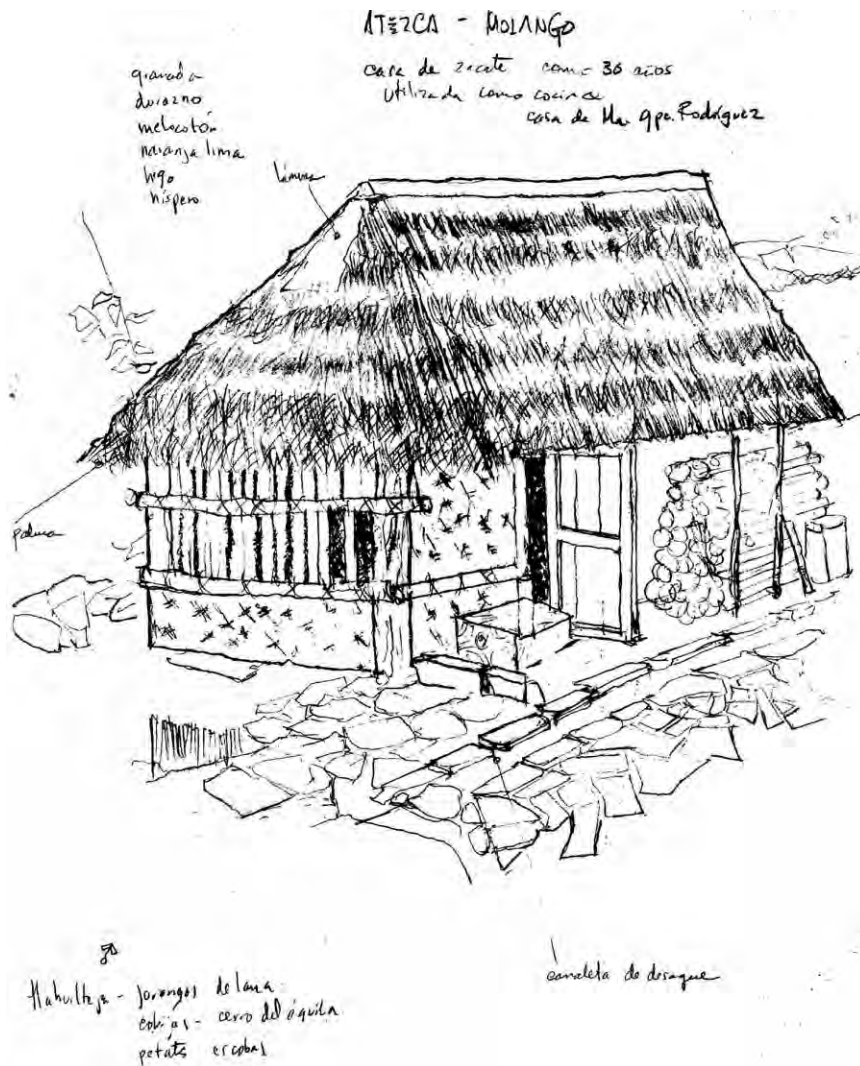 ATEZCA - MOLANGO
casa de zacate como 30 años
utilizada como cocina
casa de Ma. Gpe. Rodríguez
granada
durazno
melocotón
naranja lima
higo
níspero
lámina
palma
canaleta de desague
jorongos de lana
cobijas - cerro del águila
petates escobas